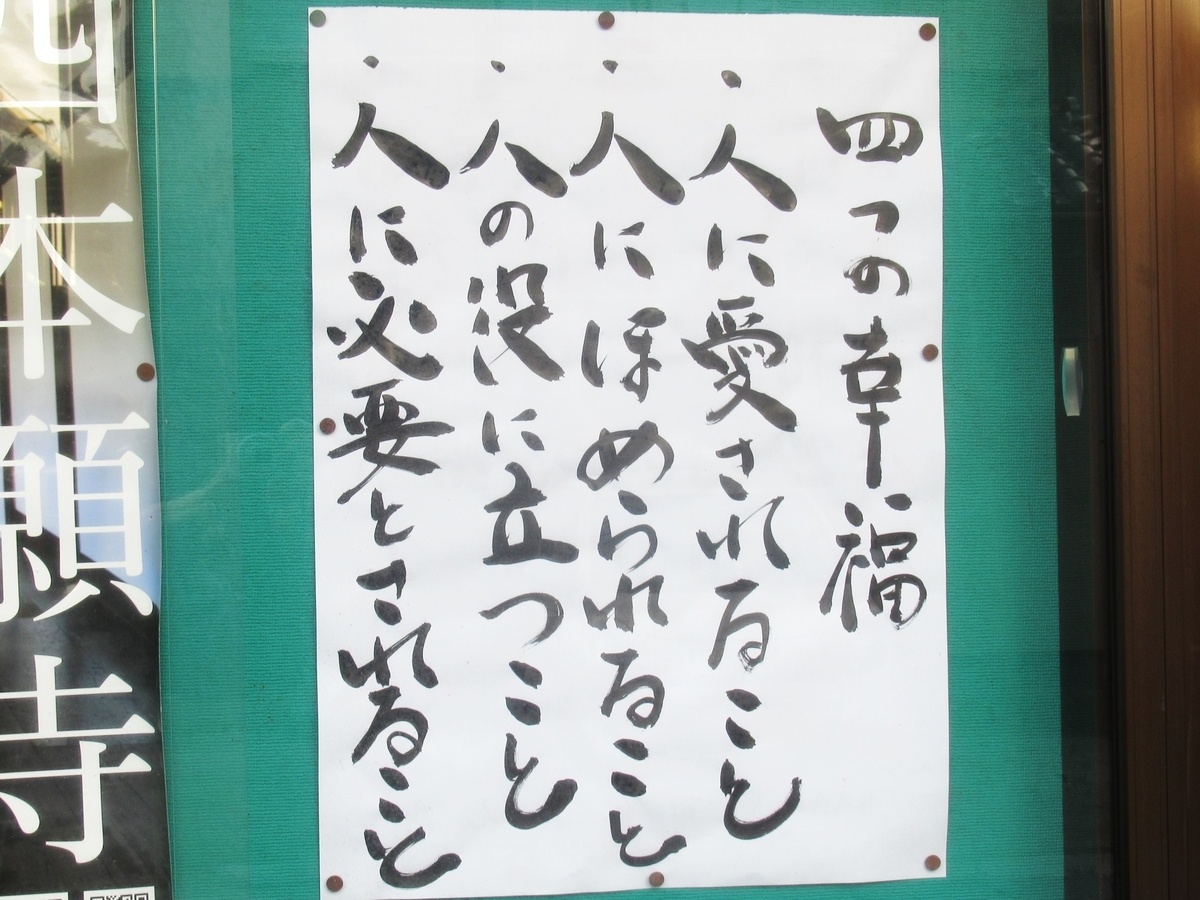 四つの幸福
・人に愛されること
・人にほめられること
・人の役に立つこと
・人に必要とされること
西本願寺